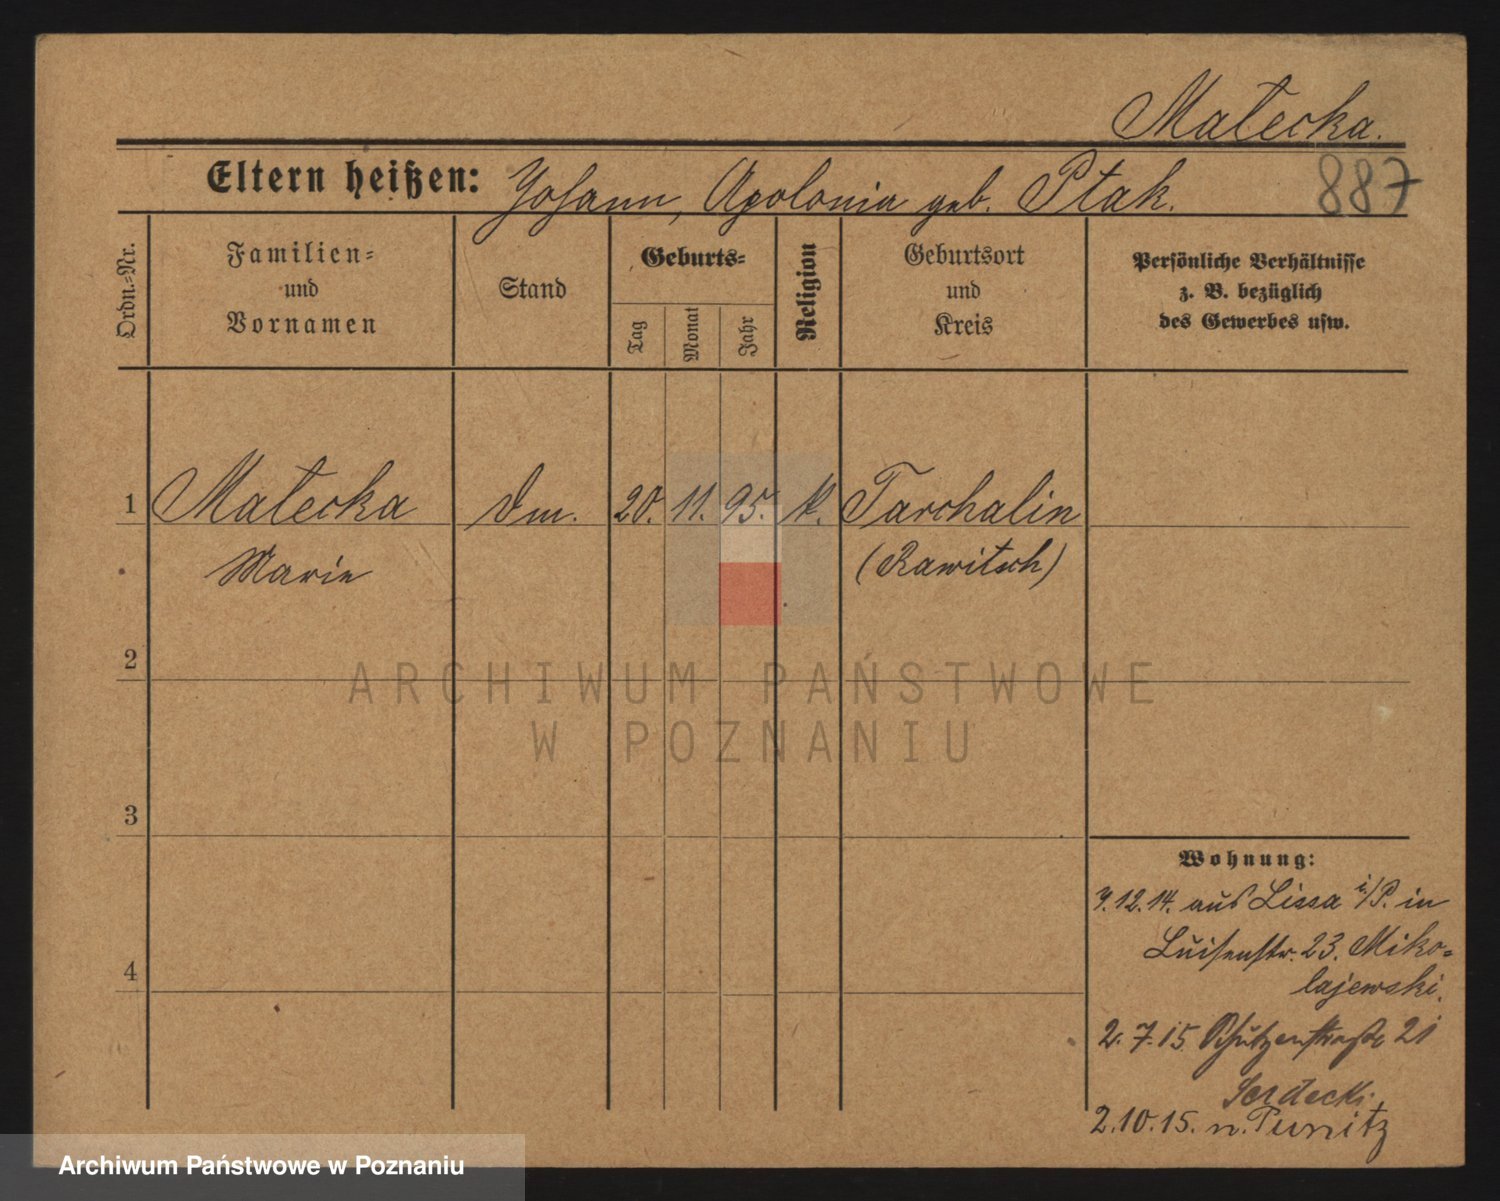 Małecka.
Eltern heißen: Johann, Apolonia geb. Ptak.
887
Ordn.=Nr.
Familien=
und
Vornamen
Stand
Geburts=
Tag
Monat
Jahr
Religion
Geburtsort
und
Kreis
Persönliche Verhältnisse
z. B. bezüglich
des Gewerbes usw.
1 Małecka Dm. 20. 11. 95. k. Tarchalin
Marie (Rawitsch)
2
3
4
ARCHIWUM PAŃSTWOWE
W POZNANIU
Wohnung:
9.12.14. aus Lissa i/P. in
Luisenstr. 23. Miko=
lajewski.
2.7.15 Schützenstraße 21
Serdecki.
2.10.15. n. Punitz
Archiwum Państwowe w Poznaniu